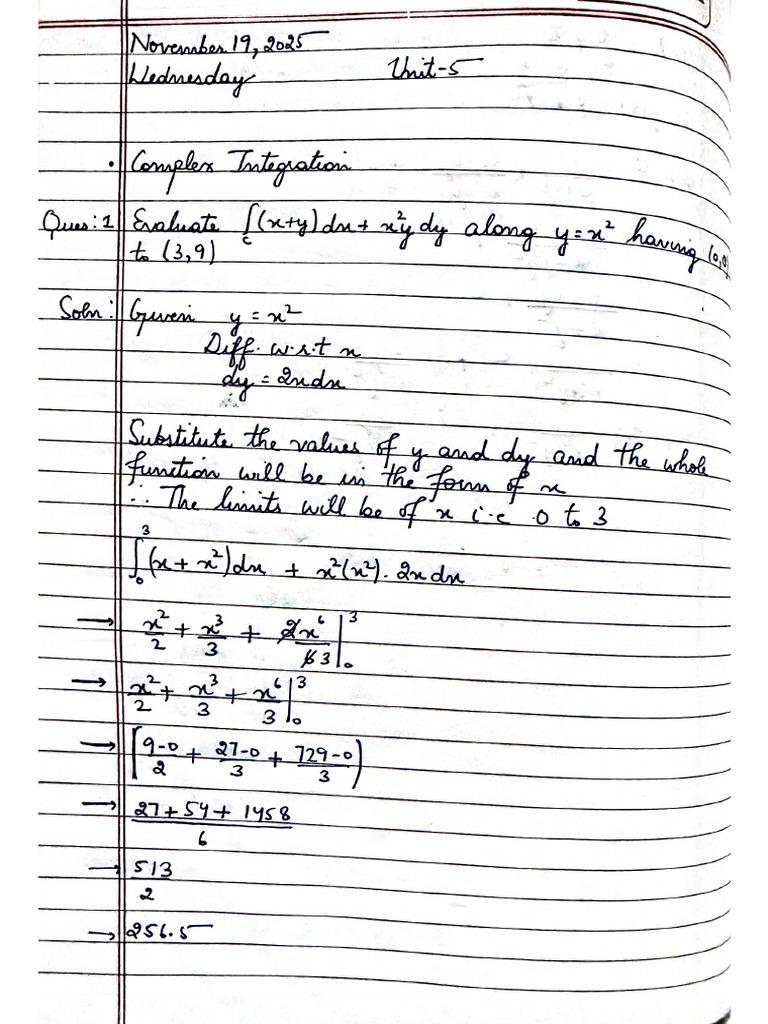 November 19, 2025
Wednesday Unit-5
• Complex Integration
Ques: 1 Evaluate ∫c (x+y) dx + x²y dy along y = x² having (0,0)
to (3,9)
Soln: Given y = x²
Diff. w.r.t x
dy = 2x dx
Substitute the values of y and dy and the whole
function will be in the form of x
∴ The limits will be of x i.e 0 to 3
∫₀³ (x + x²) dx + x²(x²) . 2x dx
→ x²/2 + x³/3 + 2x⁶/6 3 |₀³
→ x²/2 + x³/3 + x⁶/3 |₀³
→ [9-0/2 + 27-0/3 + 729-0/3)
→ 27 + 54 + 1458/6
→ 513/2
→ 256.5